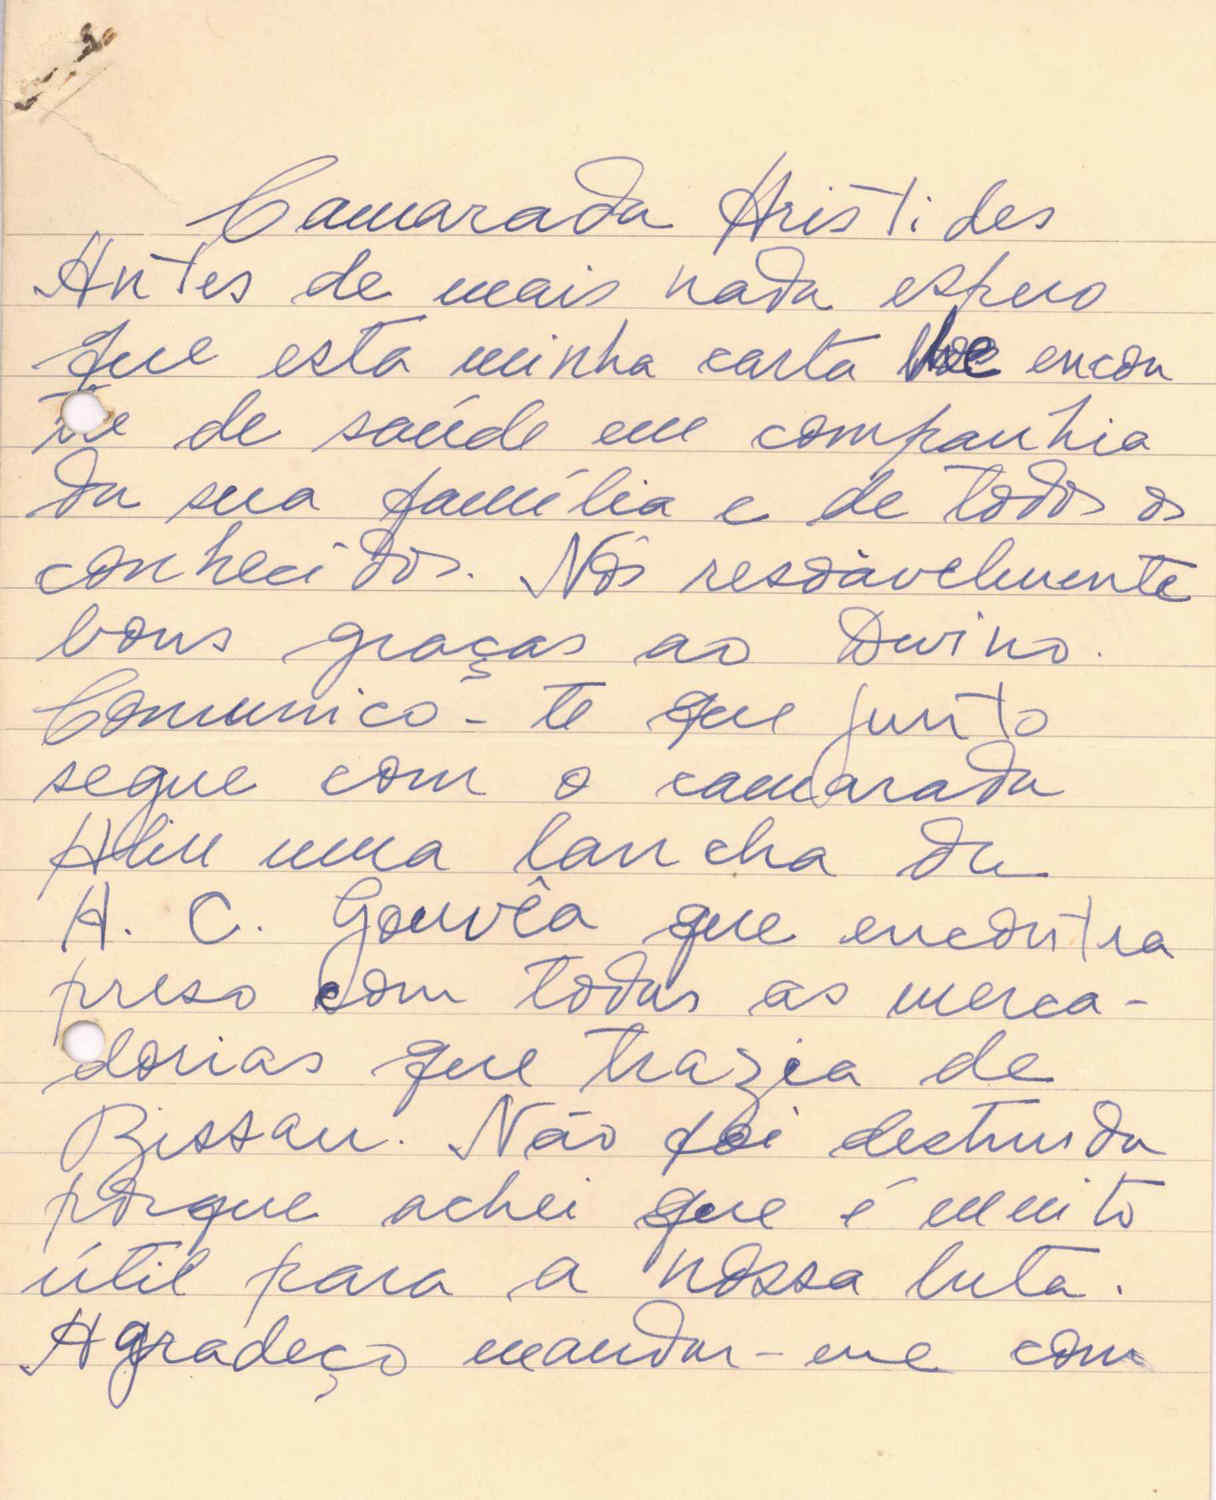 Camarada Aristides
Antes de mais nada espero
que esta minha carta lhe encon
tre de saúde em companhia
da sua família e de todos os
conhecidos. Nós resoàvelmente
bons graças ao Divino.
Comunico-te que junto
segue com o camarada
uma lancha da
A. C. Gouvêa que encontra
preso com todas as merca-
dorias que trazia de
Bissau. Não foi destruida
porque achei que é muito
útil para a nossa luta.
Agradeço mandar-me com